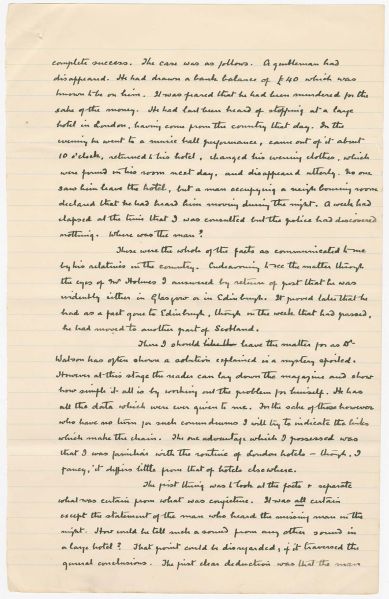 complete success. The case was as follows. A gentleman had
disappeared. He had drawn a bank balance of £40 which was
known to be on him. It was feared that he had been murdered for the
sake of the money. He had last been heard of stopping at a large
hotel in London, having come from the country that day. In the
evening he went to a music hall performance, came out of it about
10 o'clock, returned to his hotel, changed his evening clothes, which
were found in his room next day, and disappeared utterly. No one
saw him leave the hotel, but a man occupying a neighbouring room
declared that he had heard him moving during the night. A week had
elapsed at the time that I was consulted but the police had discovered
nothing. Where was the man?
These were the whole of the facts as communicated to me
by his relatives in the country. Endeavouring to see the matter through
the eyes of Mr Holmes I answered by return of post that he was
evidently either in Glasgow or in Edinburgh. It proved later that he
had as a fact gone to Edinburgh, though in the week that had passed,
he had moved to another part of Scotland.
There I should leave the matter for as Dr
Watson has often shown a solution explained is a mystery spoiled.
However at this stage the reader can lay down the magazine and show
how simple it all is by working out the problem for himself. He has
all the data which were ever given to me. For the sake of those however
who have no turn for such conundrums I will try to indicate the links
which make the chain. The one advantage which I possessed was
that I was familiar with the routine of London hotels - though, I
fancy, it differs little from that of hotels elsewhere.
The first thing was to look at the facts & separate
what was certain from what was conjecture. It was all certain
except the statement of the man who heard the missing man in the
night. How could he tell such a sound from any other sound in
a large hotel? That point could be disregarded, if it traversed the
general conclusions. The first clear deduction was that the man